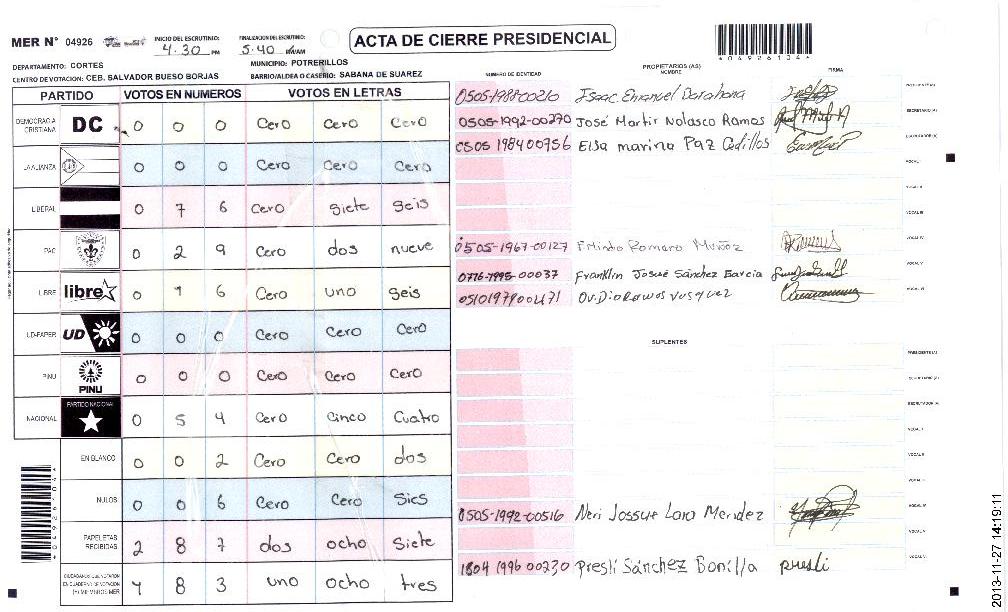 MER N° 04926 INICIO DEL ESCRUTINIO: 4:30 PM FINALIZACION DEL ESCRUTINIO: 5:40 PM/AM
ACTA DE CIERRE PRESIDENCIAL
*04926104*
DEPARTAMENTO: CORTES MUNICIPIO: POTRERILLOS
CENTRO DE VOTACION: CEB. SALVADOR BUESO BORJAS BARRIO/ALDEA O CASERIO: SABANA DE SUAREZ
PARTIDO VOTOS EN NUMEROS VOTOS EN LETRAS
DEMOCRACIA CRISTIANA DC 0 0 0 Cero Cero Cero
LA ALIANZA 0 0 0 Cero Cero Cero
LIBERAL 0 7 6 Cero Siete Seis
PAC 0 2 9 Cero dos nueve
LIBRE libre 0 1 6 Cero uno Seis
UD-FAPER UD 0 0 0 Cero Cero Cero
PINU PINU 0 0 0 Cero Cero Cero
NACIONAL PARTIDO NACIONAL 0 5 4 Cero Cinco Cuatro
EN BLANCO 0 0 2 Cero Cero dos
NULOS 0 0 6 Cero Cero Sies
PAPELETAS RECIBIDAS 2 8 7 dos ocho Siete
CIUDADANOS QUE VOTARON EN CUADERNO DE VOTACION (+) MIEMBROS MER 1 8 3 uno ocho tres
*04926104*
PROPIETARIOS (AS)
NUMERO DE IDENTIDAD NOMBRE FIRMA
Isaac Emanuel Barahona PRESIDENTE (A)
0505-1992-00270 José Martir Nolasco Ramos SECRETARIO (A)
0505 1984 00756 Elsa marina Paz Cedillos ESCRUTADOR (A)
VOCAL I
VOCAL II
VOCAL III
0505-1967-00127 Romero Muñoz VOCAL IV
Franklin Josué Sánchez Garcia VOCAL V
Ramos Vasquez VOCAL VI
SUPLENTES
PRESIDENTE (A)
SECRETARIO (A)
ESCRUTADOR (A)
VOCAL I
VOCAL II
VOCAL III
0505-1992-00516 Neri Jossue Lara Mendez VOCAL IV
VOCAL V
1804 1996 00230 Presli Sánchez Bonilla presli VOCAL VI
2013-11-27 14:19:11